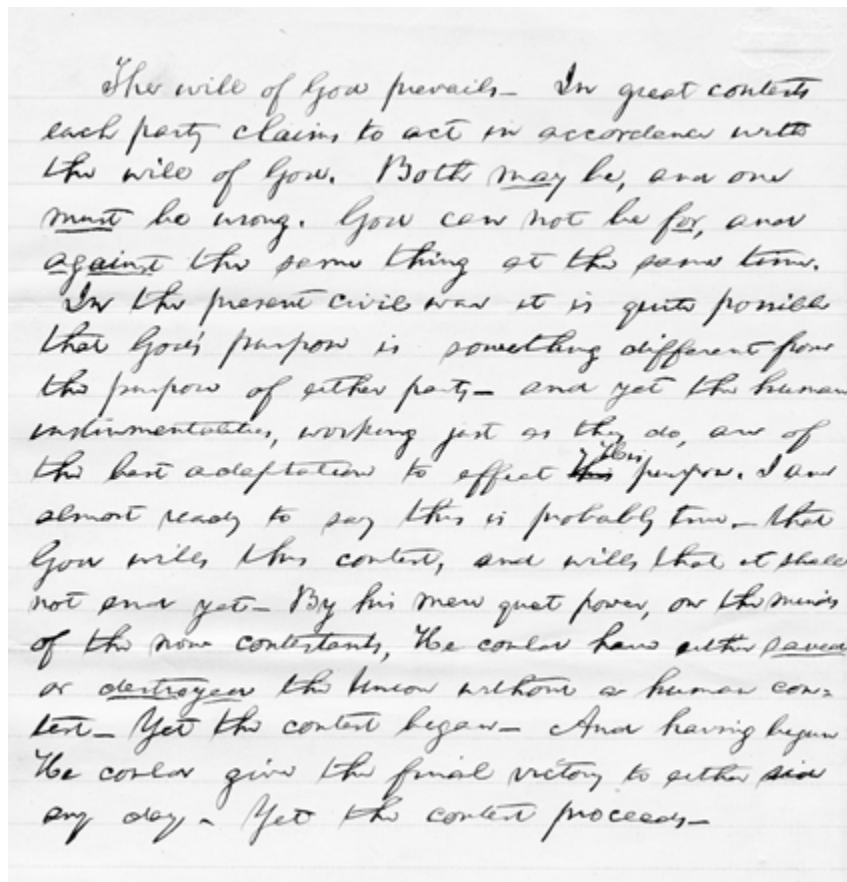 The will of God prevails— In great contests
each party claims to act in accordance with
the will of God. Both may be, and one
must be wrong. God can not be for, and
against the same thing at the same time.
In the present civil war it is quite possible
that God's purpose is something different from
the purpose of either party— and yet the human
instrumentalities, working just as they do, are of
the best adaptation to effect this His purpose. I am
almost ready to say this is probably true— that
God wills this contest, and wills that it shall
not end yet— By his mere quiet power, on the minds
of the now contestants, He could have either saved
or destroyed the Union without a human con=
test— Yet the contest began— And having begun
He could give the final victory to either side
any day— Yet the contest proceeds—